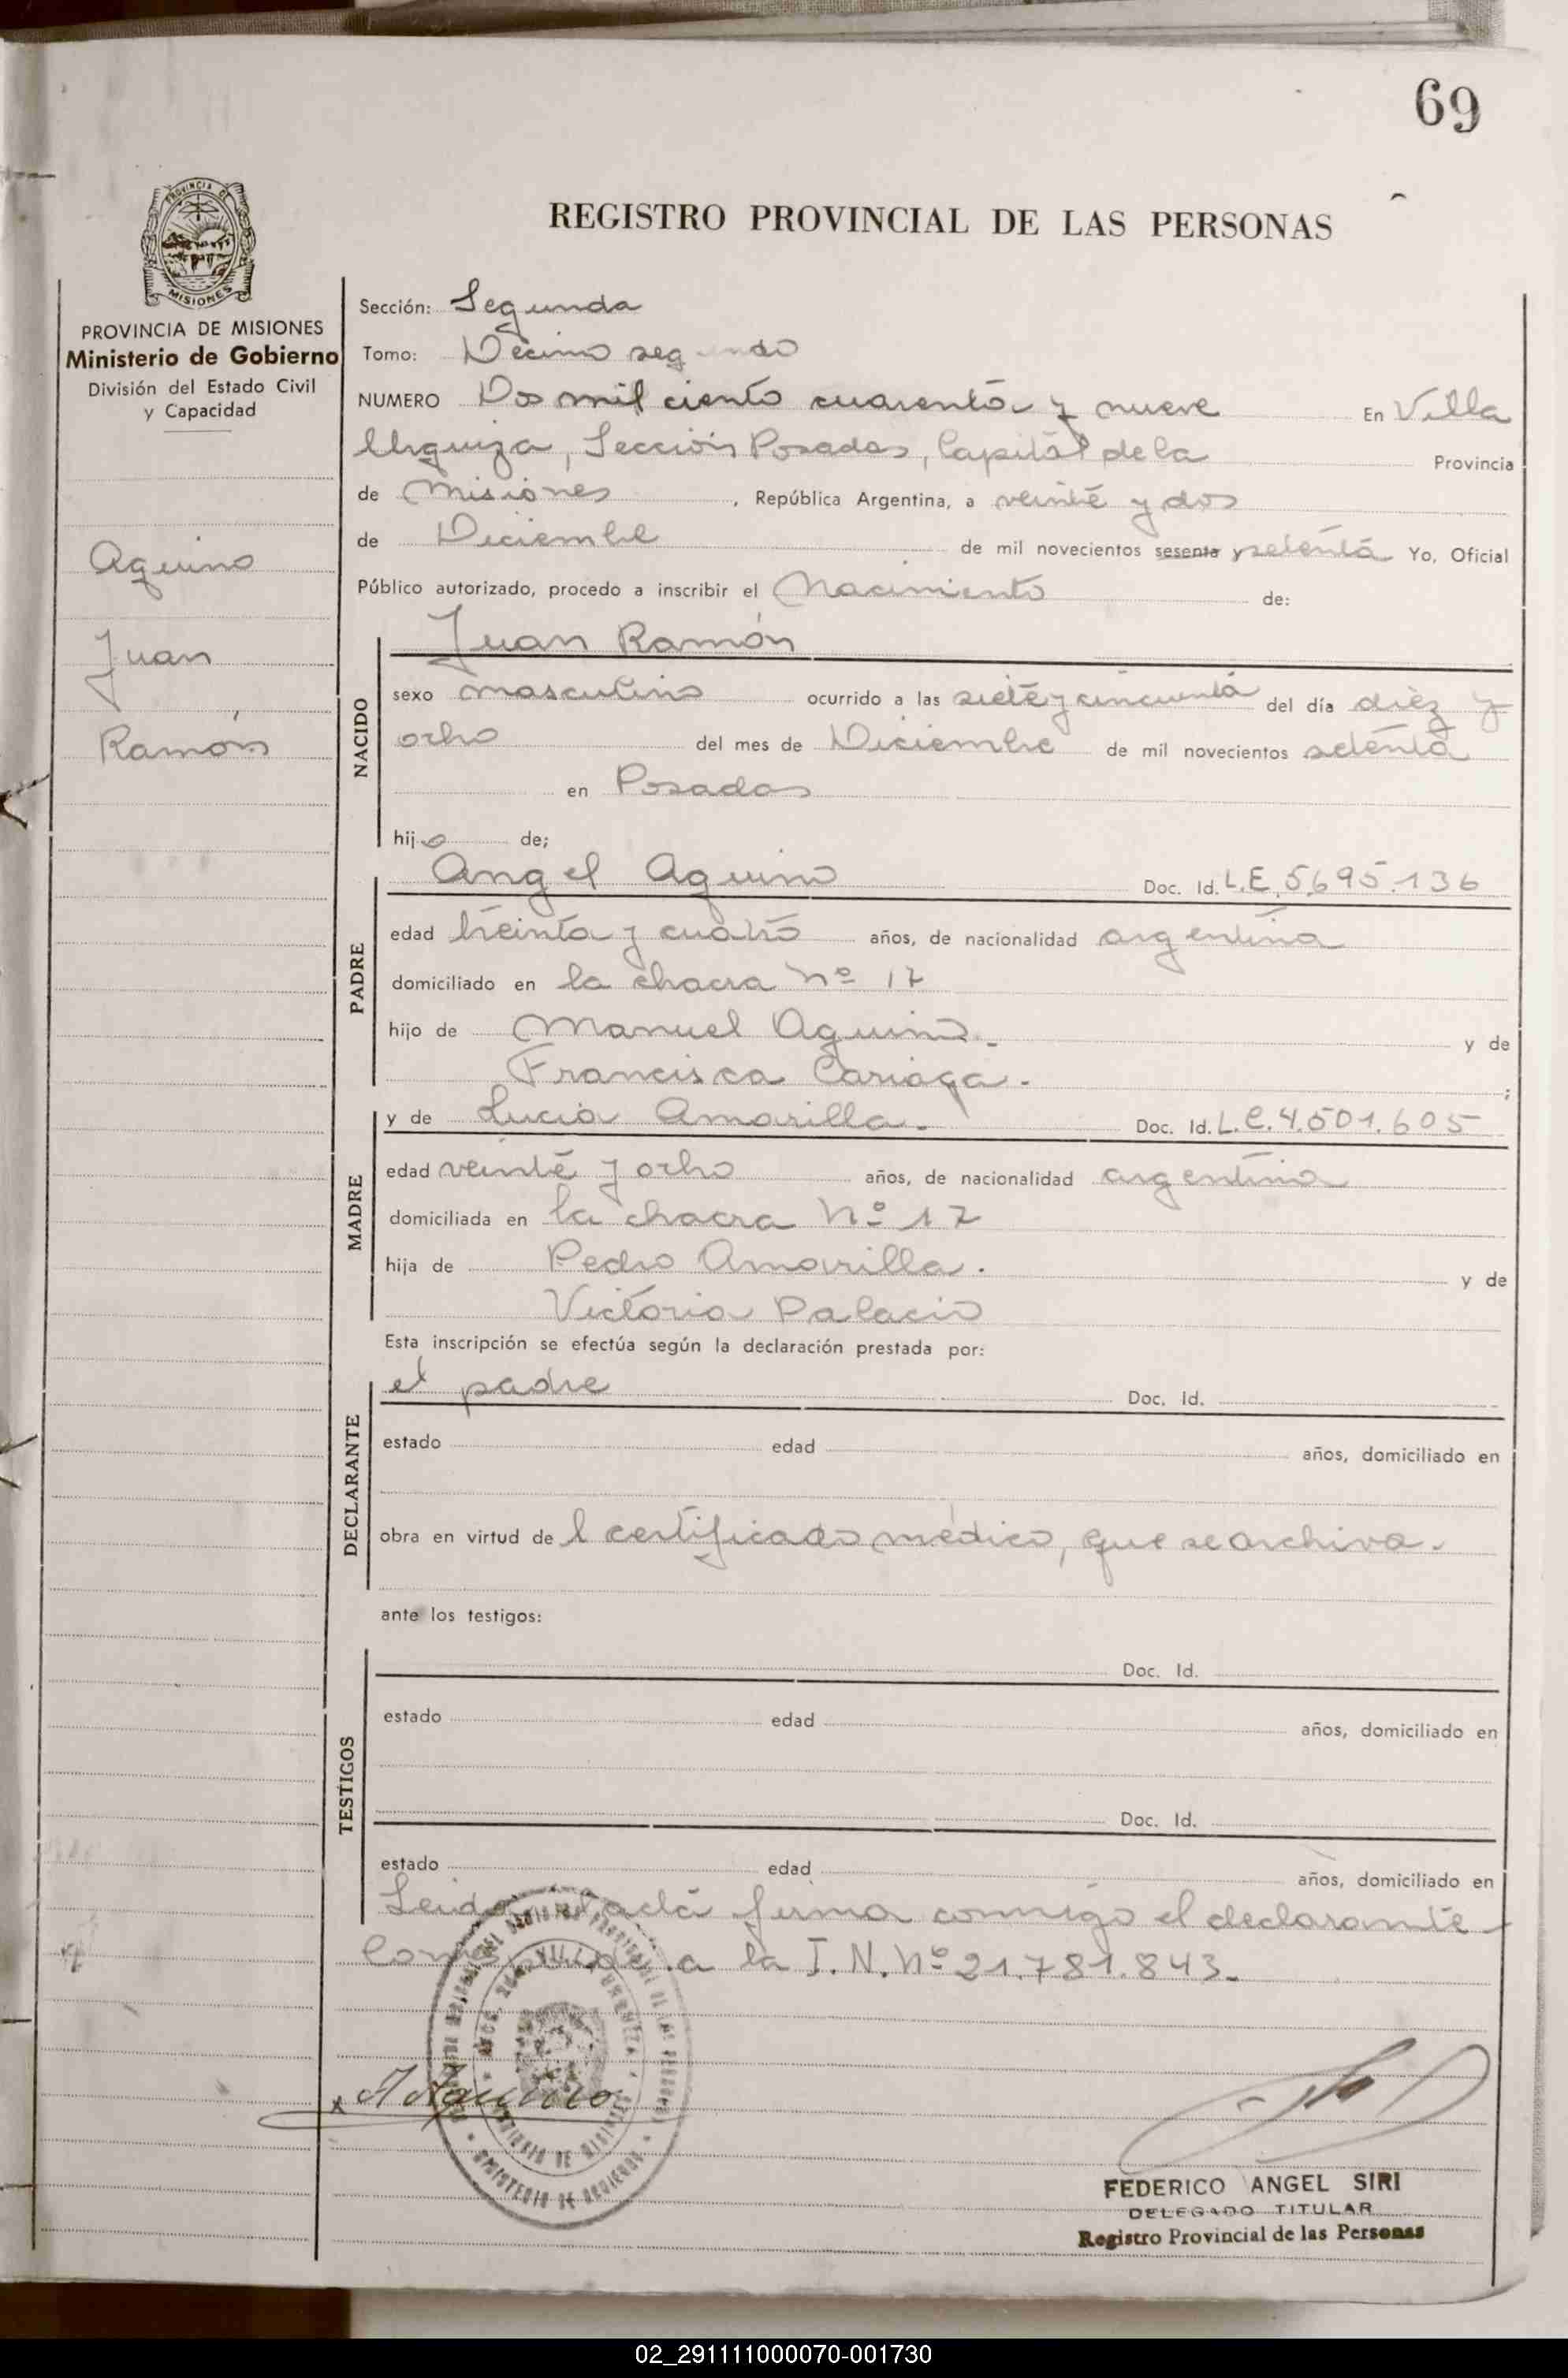 69
REGISTRO PROVINCIAL DE LAS PERSONAS
PROVINCIA DE MISIONES
PROVINCIA DE MISIONES
Ministerio de Gobierno
División del Estado Civil
y Capacidad
Aquino
Juan
Ramón
Sección: Segunda
Tomo: Décimo segundo
NUMERO Dos mil ciento cuarenta y nueve En Villa
Urquiza, Sección Posadas, Capital de la Provincia
de Misiones, República Argentina, a veinte y dos
de Diciembre de mil novecientos sesenta y setenta Yo, Oficial
Público autorizado, procedo a inscribir el Nacimiento de:
Juan Ramón
NACIDO
sexo masculino ocurrido a las siete y cincuenta del día diez y
ocho del mes de Diciembre de mil novecientos setenta
en Posadas
hijo de;
PADRE
Angel Aquino Doc. Id. L.E. 5.695.136
edad treinta y cuatro años, de nacionalidad argentina
domiciliado en la chacra Nº 17
hijo de Manuel Aquino. y de
Francisca Cariaga. ;
MADRE
y de Lucia Amarilla. Doc. Id. L.C. 4.501.605
edad veinte y ocho años, de nacionalidad argentina
domiciliada en la chacra Nº 17
hija de Pedro Amarilla. y de
Victoria Palacio
Esta inscripción se efectúa según la declaración prestada por:
DECLARANTE
el padre Doc. Id.
estado edad años, domiciliado en
obra en virtud del certificado médico, que se archiva.
ante los testigos:
TESTIGOS
Doc. Id.
estado edad años, domiciliado en
Doc. Id.
estado edad años, domiciliado en
Leida el acta firma conmigo el declarante
Corresponde a la I.N. Nº 21.781.843.
A Aquino
MINISTERIO DE GOBIERNO
FEDERICO ANGEL SIRI
DELEGADO TITULAR
Registro Provincial de las Personas
02_291111000070-001730